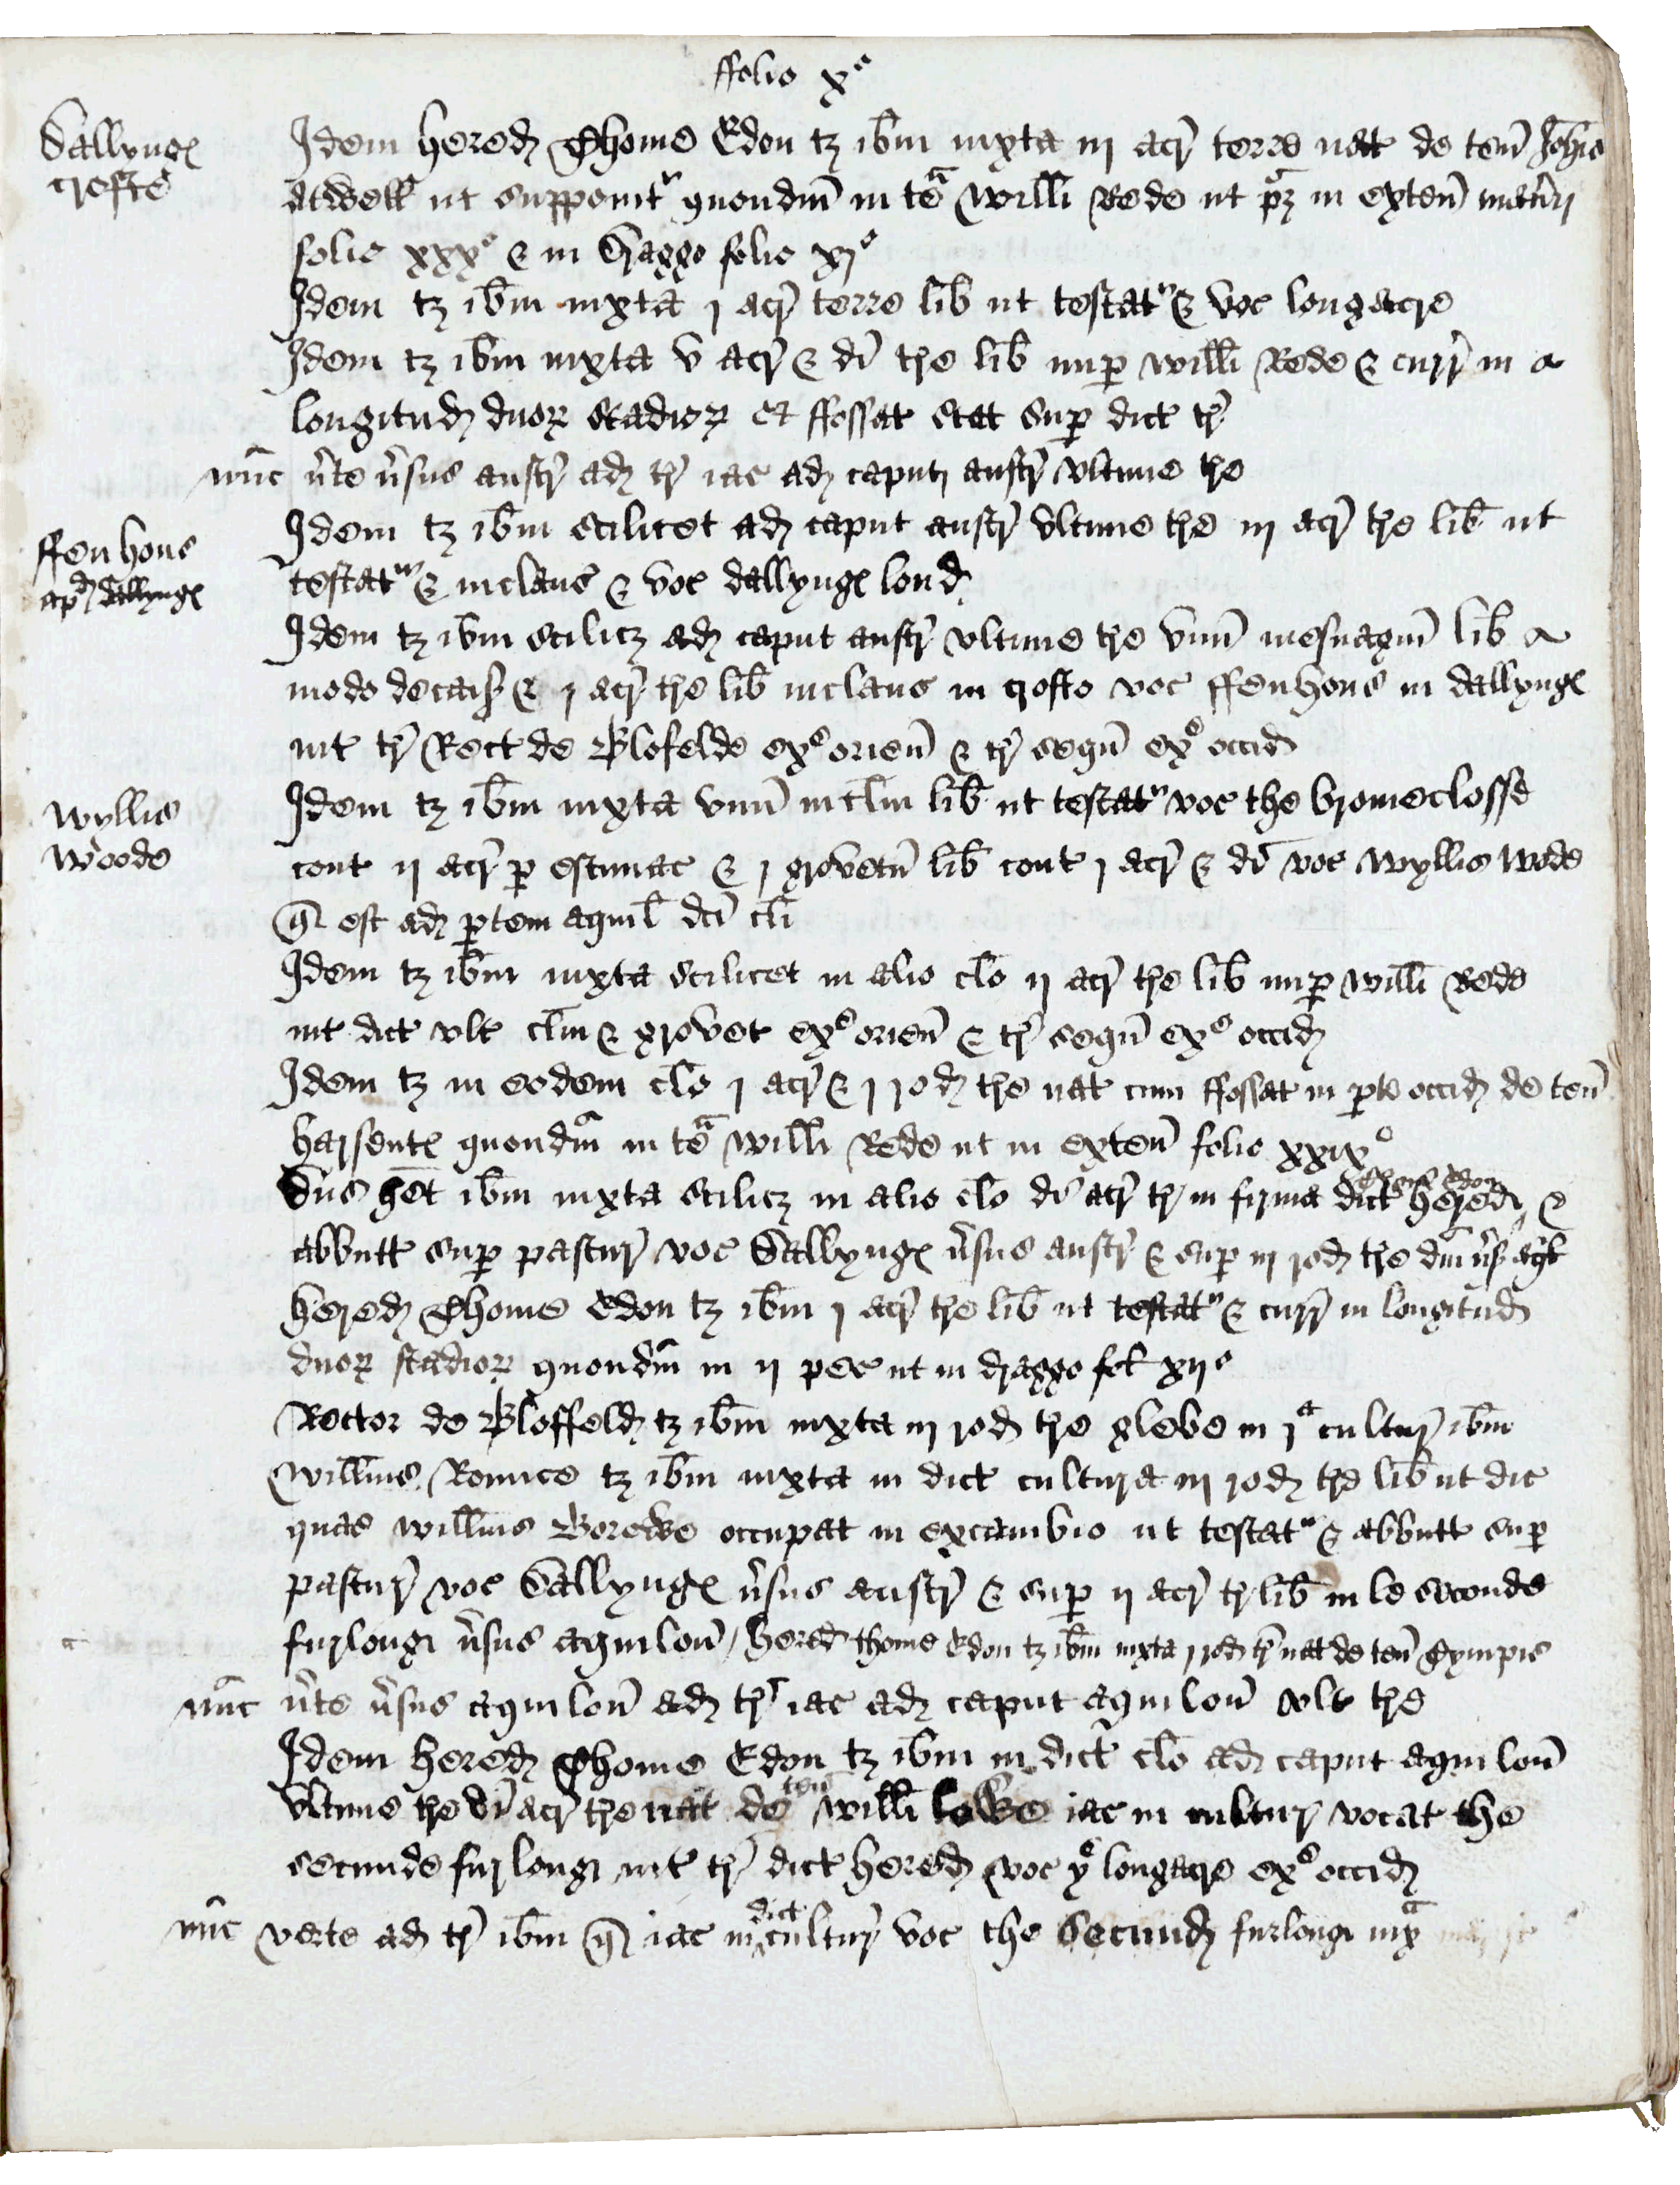 ffolio xº
Dallynge
crofte
Idem hered Thome Edon tz ibm iuxta iij acr terre nat de ten Johis
Atwell ut supponit quondm in te Willi Rede ut pz in exten
folio xxxº & in Dragge folio xjº
Idem tz ibm iuxta j acr terre lib ut testat & voc longacre
Idem tz ibm iuxta v acr & di tre lib nup Willi Rede & curr in
longitud duor stadior et ffossat stat sup dict tr
nunc vte vsus austr ad tr iac ad caput austr ultime tre
ffenhous
apd dallynge
Idem tz ibm scilicet ad caput austr ultime tre iij acr tre lib ut
testat & inclaus & voc dallynge lond
Idem tz ibm scilicz ad caput austr ultime tre unu mesuagiu lib
modo decas & j acr tre lib inclaus in crofto voc ffenhous in dallynge
int tr Rect de Blofelde exº orien & tr sequ exº occid
Wyllis
Woode
Idem tz ibm iuxta unu inclm lib ut testat voc the bromeclosse
cont ij acr p estimac & j grovetu lib cont j acr & di voc Wyllis Wode
q est ad ptem aquil dci cli
Idem tz ibm iuxta scilicet in alio clo ij acr tre lib nup Willi Rede
int dict ult clm & grovet exº orien & tr sequ exº occid
Idem tz in eodem clo j acr & j rod tre nat cum ffossat in pte occid de ten
harsente quondm in te Willi Rede ut in exten folio xxixº
Thome Edon
Dns het ibm iuxta scilicz in alio clo di acr tr in firma dict hered &
abbutt sup pastur voc Dallynge vsus austr & sup iij rod tre dni vs aql
hered Thome Edon tz ibm j acr tre lib ut testat & curr in longitud
duor stadior quondm in ij pec ut in dragge fol xijº
Rector de Bloffeld tz ibm iuxta iij rod tre glebe in j cultur ibm
Willms Ronnce tz ibm iuxta in dict cultura iij rod tre lib ut dic
quas Willms Borewe occupat in excambio ut testat & abbutt sup
pastur voc Dallynge vsus austr & sup ij acr tr lib in le seconde
furlong vsus aquilon / hered thome Edon tz ibm iuxta j rod tr nat de ten Gympis
nunc vte vsus aquilon ad tr iac ad caput aquilon ult tre
Idem hered Thome Edon tz ibm in dict clo ad caput aquilon
ten
ultime tre di acr tre nat de Willi lowe iac in cultur vocat the
secunde furlong int tr dict hered voc ye longacre exº occid
dict
nunc verte ad tr ibm q iac in cultur voc the Secund furlong iux